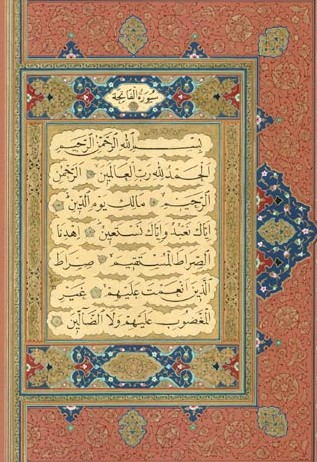 سورة الفاتحة
بسم الله الرحمن الرحيم
الحمد لله رب العالمين الرحمن
الرحيم مالك يوم الدين
اياك نعبد واياك نستعين اهدنا
الصراط المستقيم صراط
الذين انعمت عليهم غير
المغضوب عليهم ولا الضالين